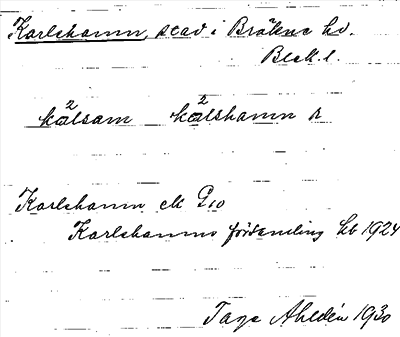 Karlshamn, stad i Bräkne hd.
Blek. l.
kalsam kalshamn
Karlshamn
Karlshamns församling hb 1924
Tage Ahldén 1930